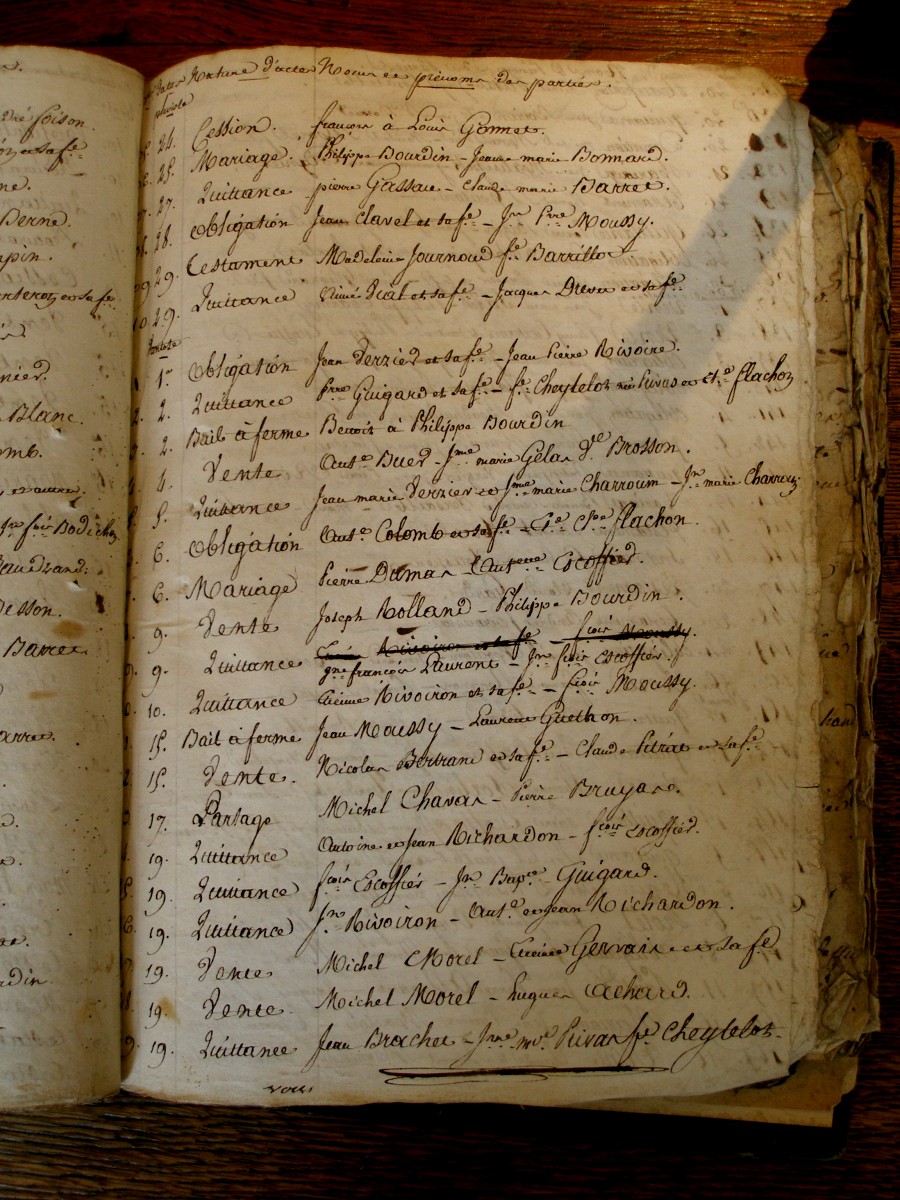 né foison.
et sa fe.
Berne.
et sa fe.
nier.
Blanc.
omb.
et autre.
Jn. fois. Bodichon
Beaudrand:
esson.
Barret
arret.
rdin
Dates Nature d'actes Noms et prénoms des parties.
pluviose
24. Cession. françois à Louis Gonnet.
25. Mariage. Philippe Bourdin - Jeanne marie Bonnard.
27. Quittance pierre Gassau - Claude marie Barret.
28. Obligation Jean Clavel et sa fe. - Jn. Prre. Moussy.
29. Testament Madeleine Journoud fe. Barrillot
29. Quittance Aimé Vial et sa fe. - Jacques Drevet et sa fe.
Ventose
1er Obligation Jean Verzier et sa fe. - Jean Pierre Rivoire.
2. Quittance Prre. Guigard et sa fe. - fe. Cheytelot née Privas et Cte. flachon
2. Bail à ferme Benoit à Philippe Bourdin
4. Vente Ant.e Buer - Jme. marie Gelas Ve. Brosson.
5. Quittance Jean marie Verzier et Jme. marie Charrouin - Jn. marie Charrouin
6. Obligation Ant.e Colomb et sa fe. - flachon.
6. Mariage Pierre Dumas - Antnne Escoffier.
9. Vente Joseph Rolland - Philippe Bourdin.
Rivoiron et sa fe. - fcois. Moussy.
9. Quittance françois Laurent - Jn. fcois. Escoffier.
10. Quittance Etienne Rivoiron et sa fe. - fcois. Moussy.
15. Bail à ferme Jean Moussy - Laurent Guethon.
15. Vente. Nicolas Bertrand et sa fe. - Claude Pitrat et sa fe.
17. Partage Michel Chavas - Pierre Bruyas.
19. Quittance Antoine et Jean Richardon - fcois. Escoffier.
19. Quittance fcois. Escoffier - Jn. Bapte. Guigard.
19. Quittance Jn. Rivoiron - Ant.e et Jean Richardon.
19. Vente Michel Morel - Etienne Gervais et sa fe.
19. Vente Michel Morel - hugues Achard.
19. Quittance Jean Brachet - Jnne. me. Privas fe. Cheytelot.